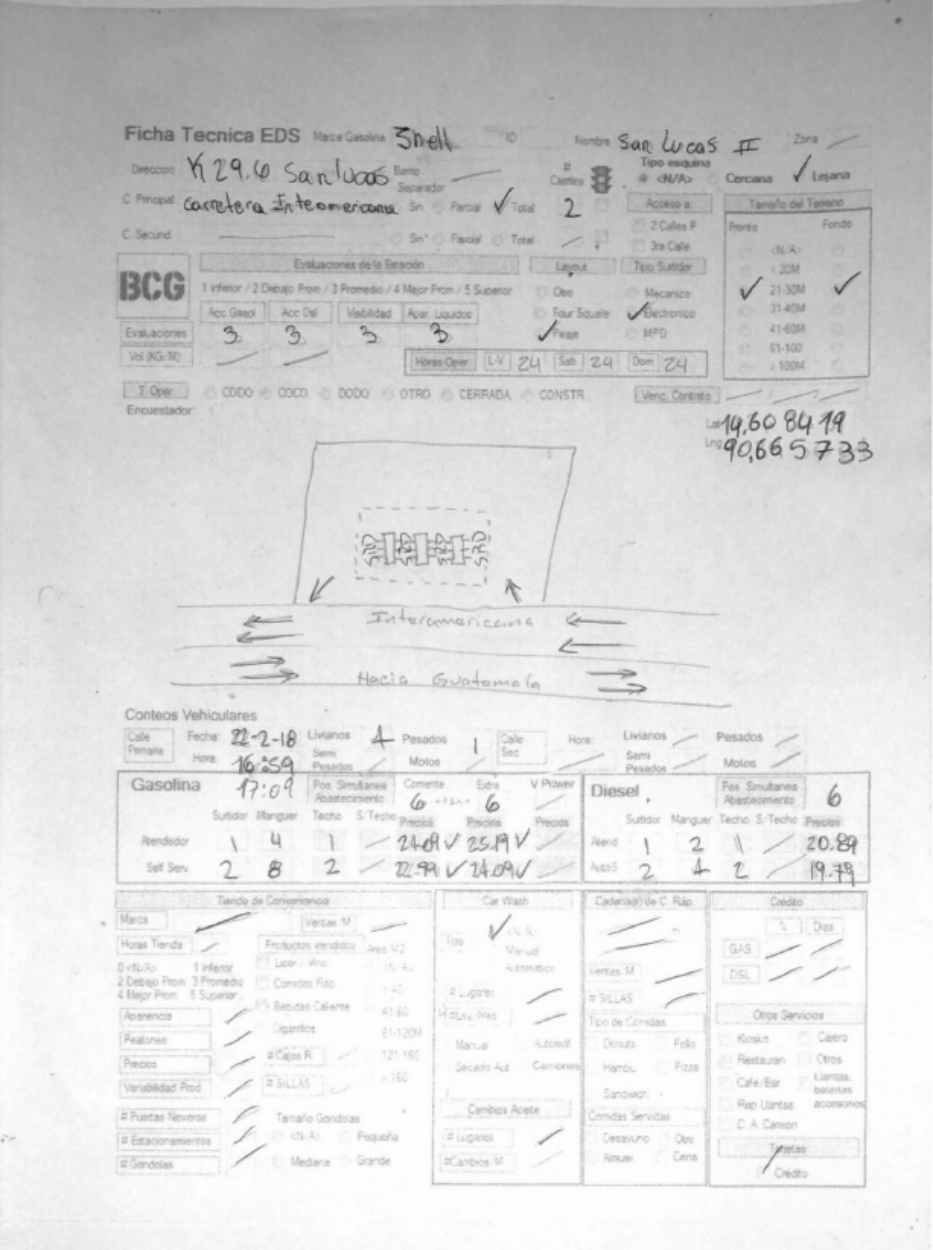 Ficha Tecnica EDS Marca Gasolina Shell ID Nombre San Lucas II Zona
Direccion K 29.6 San lucas Barrio # Carriles Tipo esquina <N/A> Cercana ✓ Lejana
Separador
C. Principal Carretera Inteamericana Sin Parcial ✓ Total 2 Acceso a: Tamaño del Terreno
C. Secund. Sin Parcial Total 2 Calles P Frente Fondo
3ra Calle <N/A>
BCG Evaluaciones de la Estación Layout Tipo Surtidor < 20M
1 inferior / 2 Debajo Prom / 3 Promedio / 4 Mejor Prom / 5 Superior Otro Mecanico ✓ 21-30M ✓
Acc Gasol Acc Dsl Visibilidad Apar. Liquidos Four Square ✓ Electronico 31-40M
Evaluaciones 3 3 3 3 ✓ Peaje MPD 41-60M
61-100
Vol (KG/M) Horas Oper. L-V 24 Sab 24 Dom 24 > 100M
T. Oper CODO COCO DODO OTRO CERRADA CONSTR. Venc. Contrato
Encuestador:
Lat 14,608419
Lng 90,665733
SRD SRD SRD SRD
Interamericana
Hacia Guatemala
Conteos Vehiculares
Calle Primaria Fecha: 22-2-18 Livianos 4 Pesados 1 Calle Sec Hora: Livianos Pesados
Hora: 16:59 Semi Pesados Motos Semi Pesados Motos
Gasolina 17:09 Pos. Simultanea Abastecimiento Corriente 6 Extra 6 V Power Diesel Pos. Simultanea Abastecimiento 6
Surtidor Manguer Techo S/Techo Precios Precios Precios Surtidor Manguer Techo S/Techo Precios
Atendedor 1 4 1 24.09 ✓ 25.19 ✓ Atend 1 2 1 20.89
Self Serv. 2 8 2 22.99 ✓ 24.09 ✓ AutoS 2 4 2 19.79
Tienda de Conveniencia Car Wash Cadena de C. Ráp. Crédito
Marca Ventas M ✓ <N/A> % Dias
Horas Tienda Productos vendidos Area M2 Tipo Manual GAS
0 <N/A> 1 inferior Licor / Vino <N/A> Automatico Ventas M DSL
2 Debajo Prom 3 Promedio Comidas Ráp
4 Mejor Prom 5 Superior # Lugares # SILLAS
Apariencia Bebidas Caliente 41-60 Otros Servicios
Peatones Cigarrillos 61-120M Tipo de Comidas Kiosko Cajera
Precios # Cajas R. 121-160 Manual Automát Donuts Pollo Restauran Otros
Variabilidad Prod. # SILLAS > 160 Secado Aut Camiones Hambu Pizza Café/Bar Llantas, baterias accesorios
Sandwich Rep Llantas
# Puertas Neveras Tamaño Gondolas Cambios Aceite Comidas Servidas C. A. Camion
# Estacionamientos <N/A> Pequeña # Lugares Desayuno Otro Tarjetas
# Gondolas Mediana Grande # Cambios/M Almuer Cena Crédito